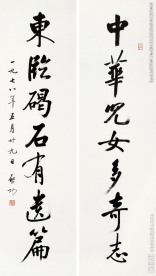 中華兒女多奇志
東臨碣石有遺篇
一九七八年五月廿九日 啟功